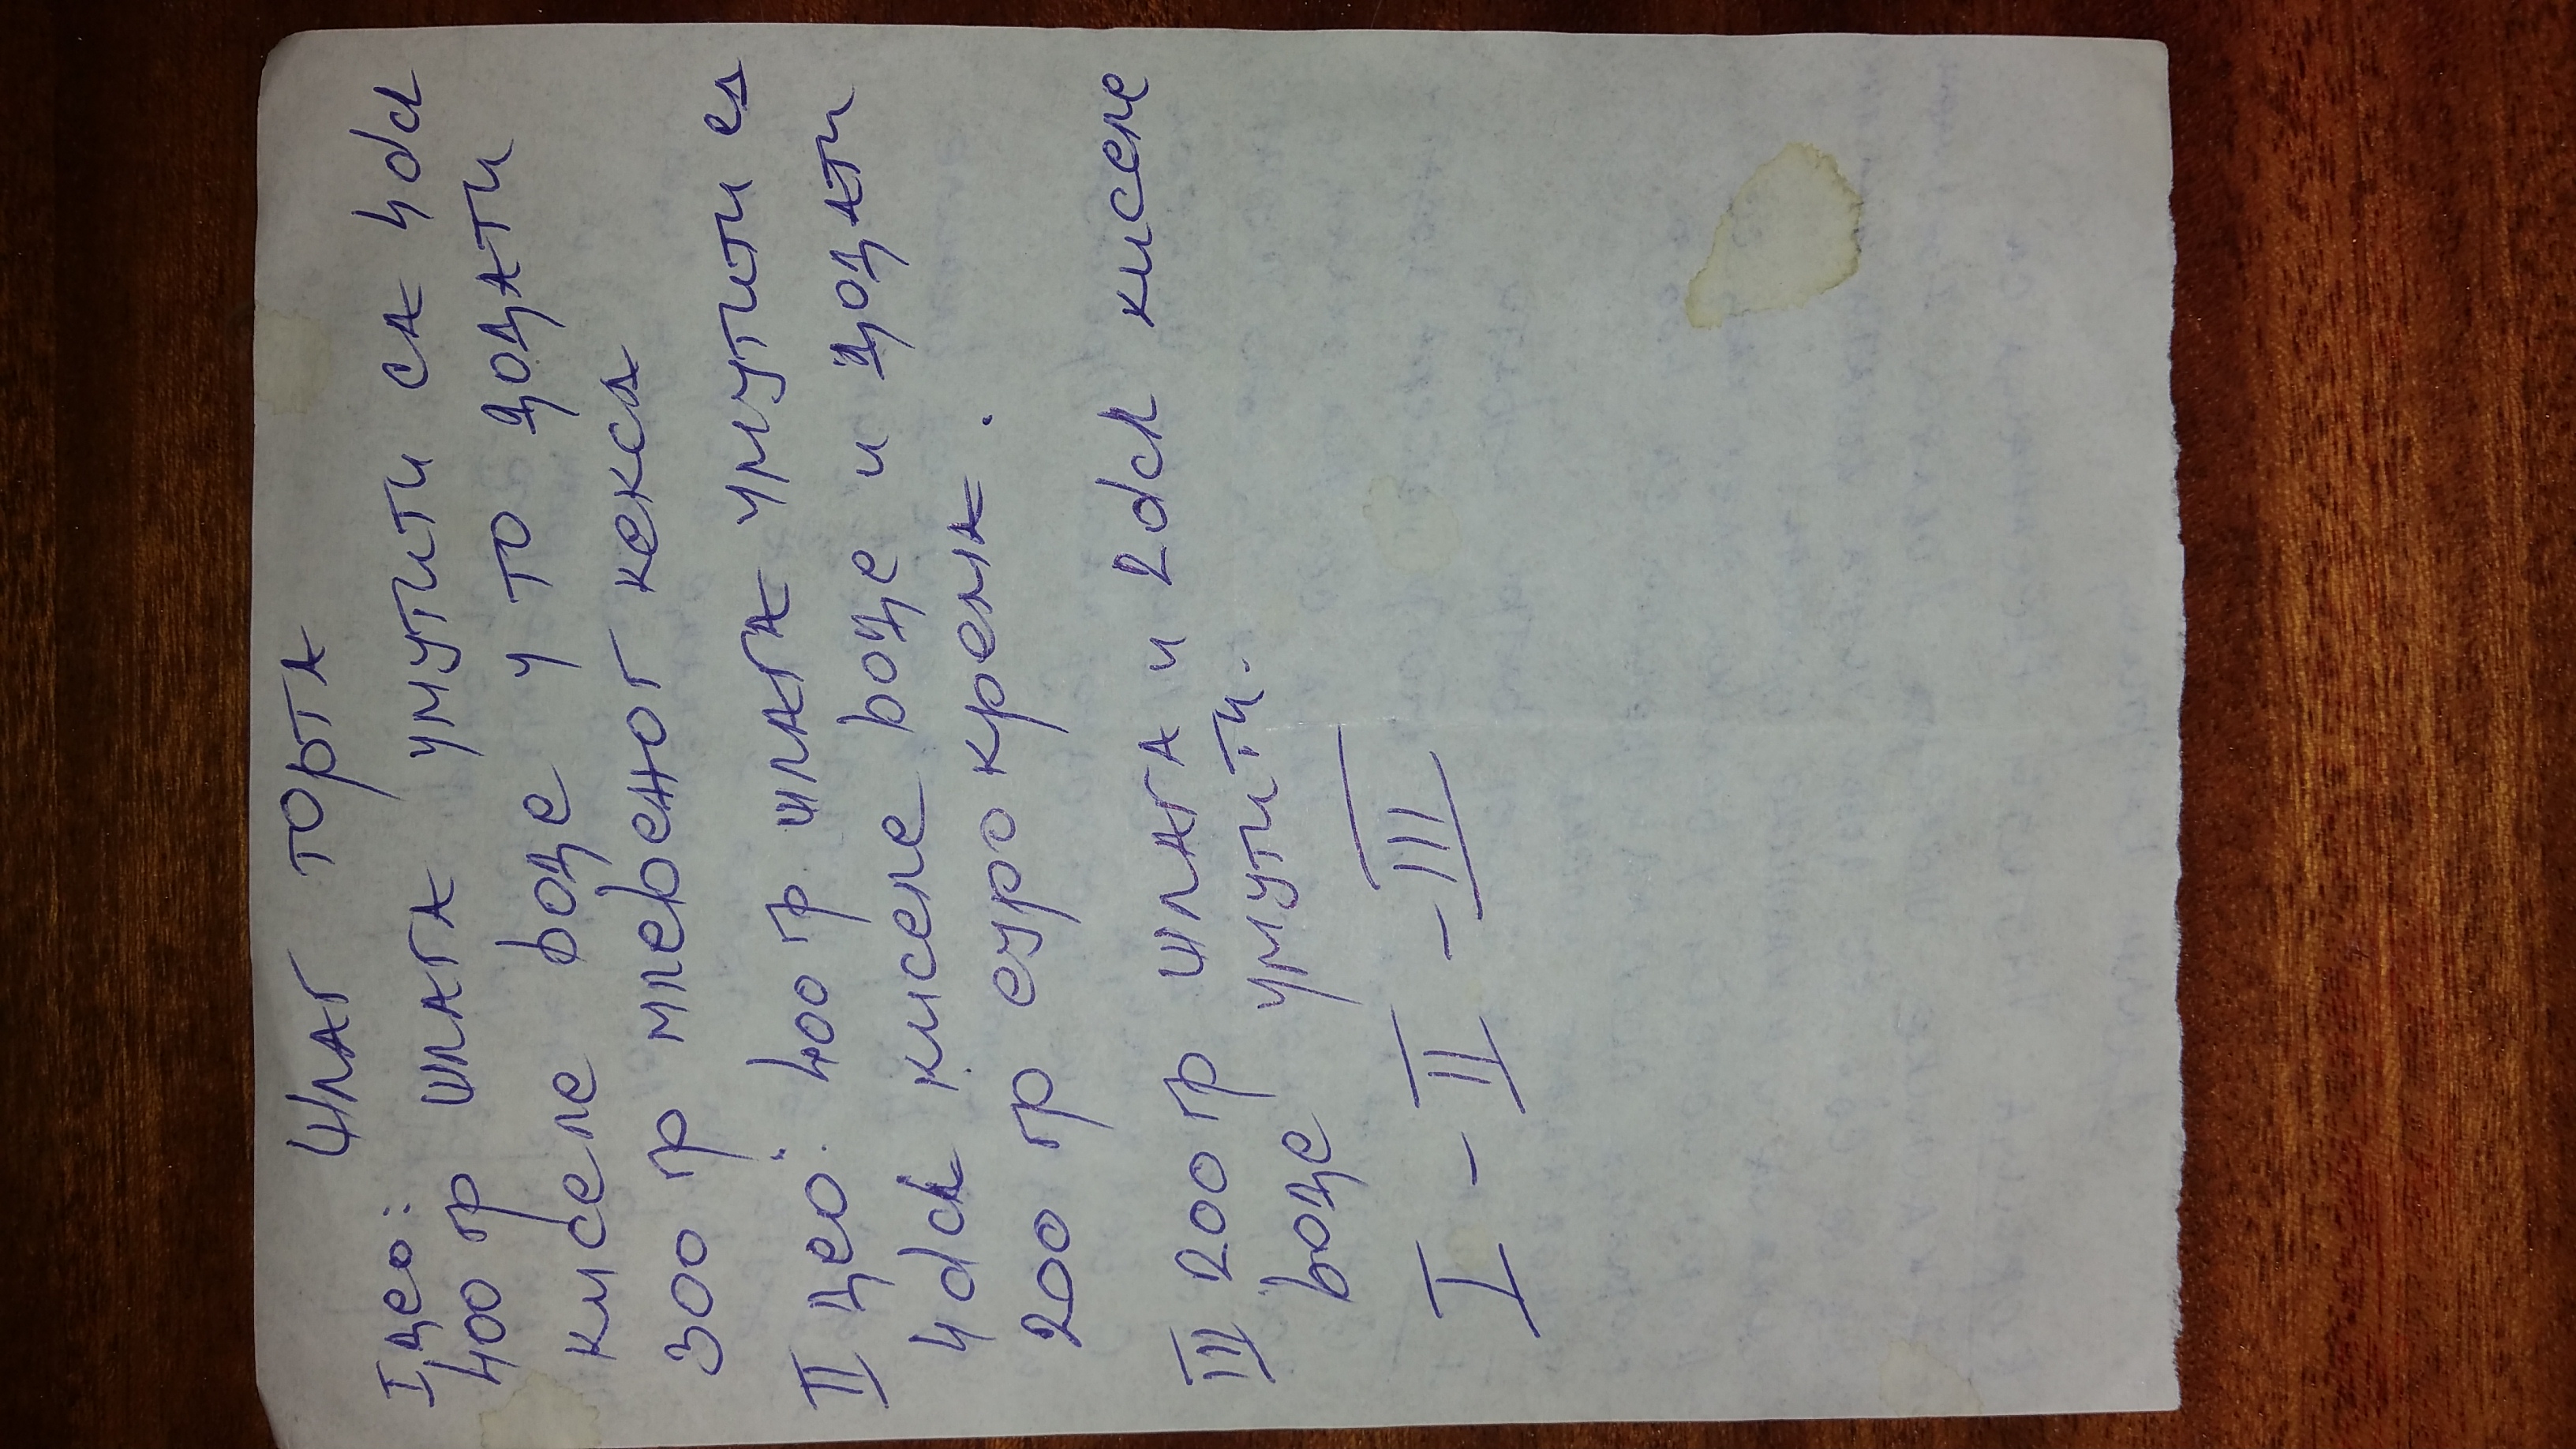 Шлаг торта
I део:
400 гр шлага умутити са 4 dcl
киселе воде у то додати
300 гр млевеног кекса
II део: 400 гр. шлага умутити са
4 dcl киселе воде и додати
200 гр еурокрема.
III 200 гр шлага и 2 dcl киселе
воде умутити.
I - II - III